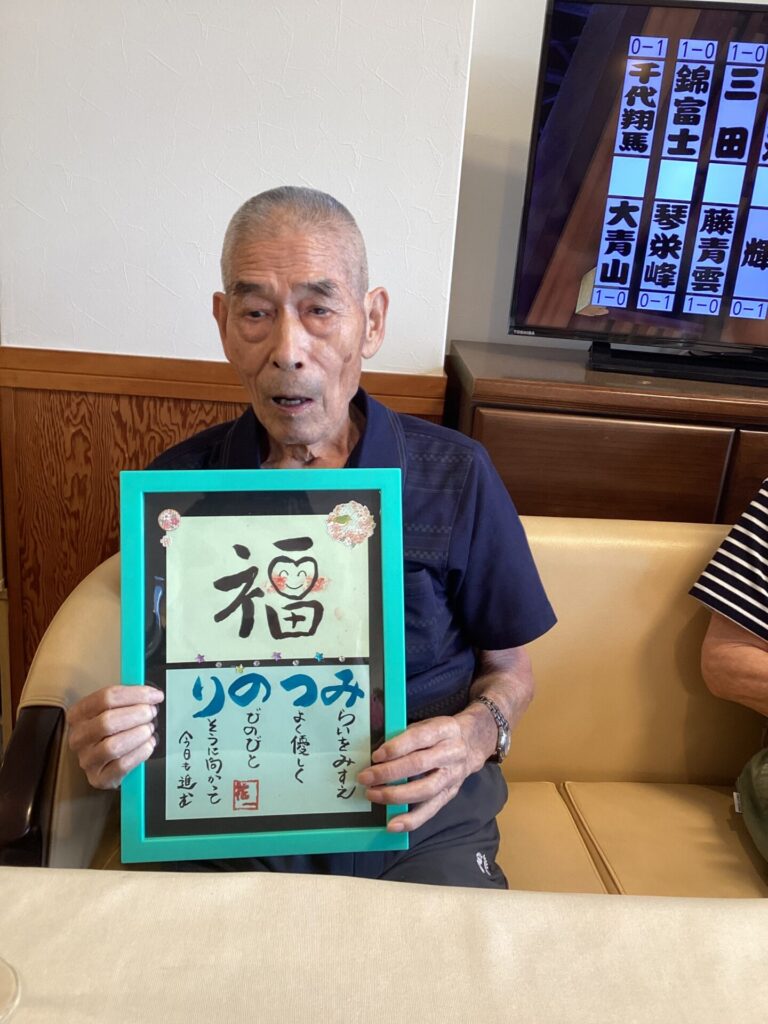 0-1 1-0 1-0
千代翔馬
錦富士
三田
大青山
琴栄峰
藤青雲
輝
1-0 0-1 1-0 0-1
TOSHIBA
福
みらいをみすえ
つよく優しく
のびのびと
りそうに向かって
今日も進む